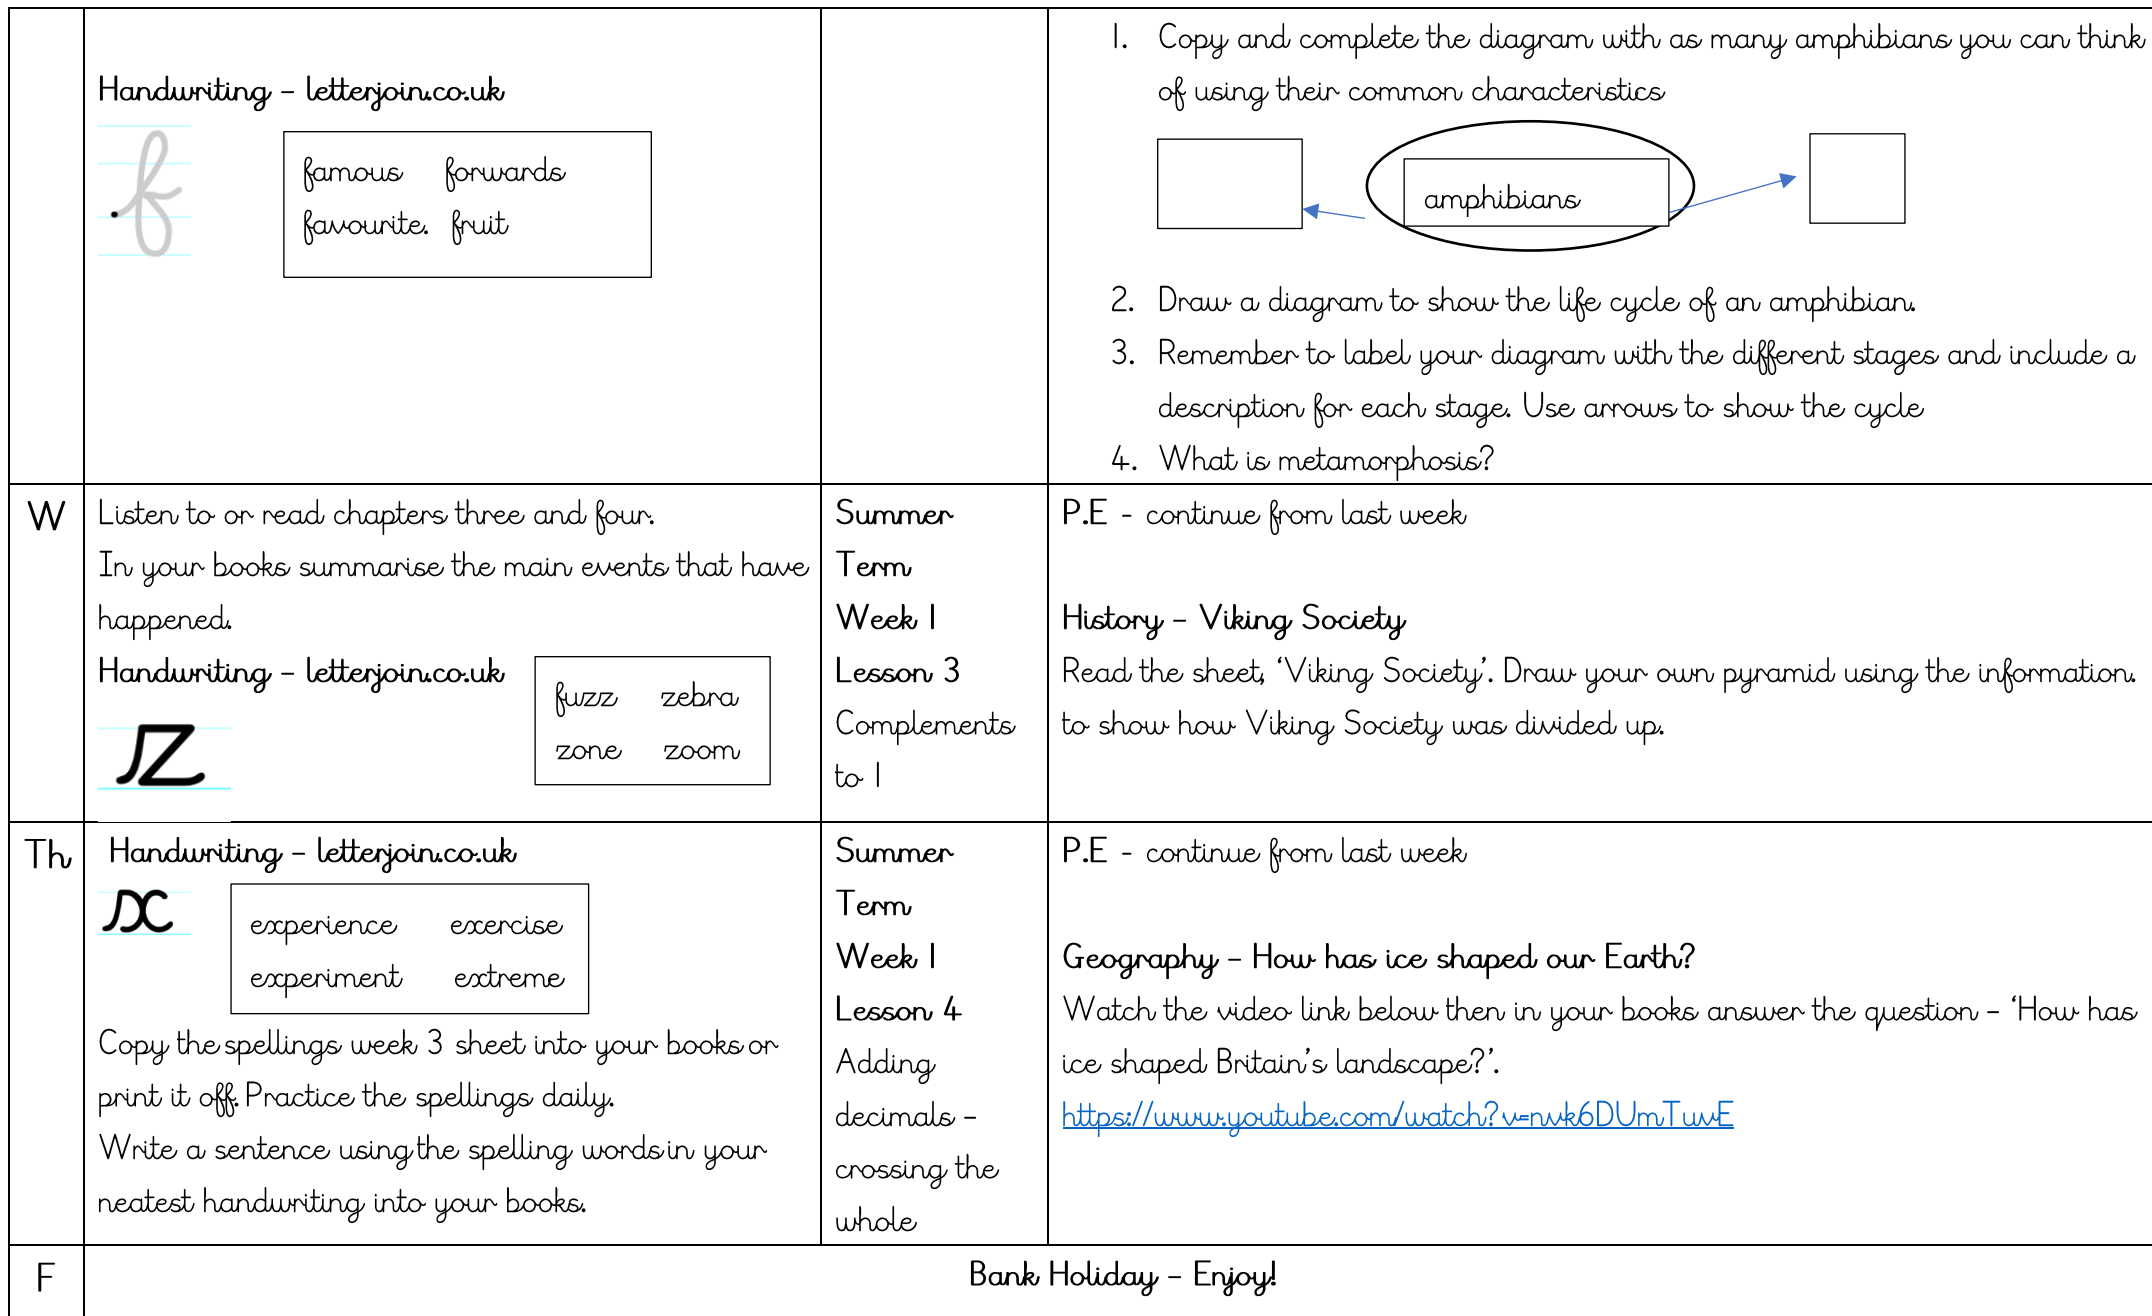 Handwriting – letterjoin.co.uk
f
famous forwards
favourite. fruit
1. Copy and complete the diagram with as many amphibians you can think
of using their common characteristics
amphibians
2. Draw a diagram to show the life cycle of an amphibian.
3. Remember to label your diagram with the different stages and include a
description for each stage. Use arrows to show the cycle
4. What is metamorphosis?
W
Listen to or read chapters three and four.
In your books summarise the main events that have
happened.
Handwriting – letterjoin.co.uk
z
fuzz zebra
zone zoom
Summer
Term
Week 1
Lesson 3
Complements
to 1
P.E - continue from last week
History – Viking Society
Read the sheet, ‘Viking Society’. Draw your own pyramid using the information.
to show how Viking Society was divided up.
Th
Handwriting – letterjoin.co.uk
x
experience exercise
experiment extreme
Copy the spellings week 3 sheet into your books or
print it off. Practice the spellings daily.
Write a sentence using the spelling words in your
neatest handwriting into your books.
Summer
Term
Week 1
Lesson 4
Adding
decimals –
crossing the
whole
P.E - continue from last week
Geography – How has ice shaped our Earth?
Watch the video link below then in your books answer the question – ‘How has
ice shaped Britain’s landscape?’.
https://www.youtube.com/watch?v=nvk6DUmTuvE
F
Bank Holiday – Enjoy!